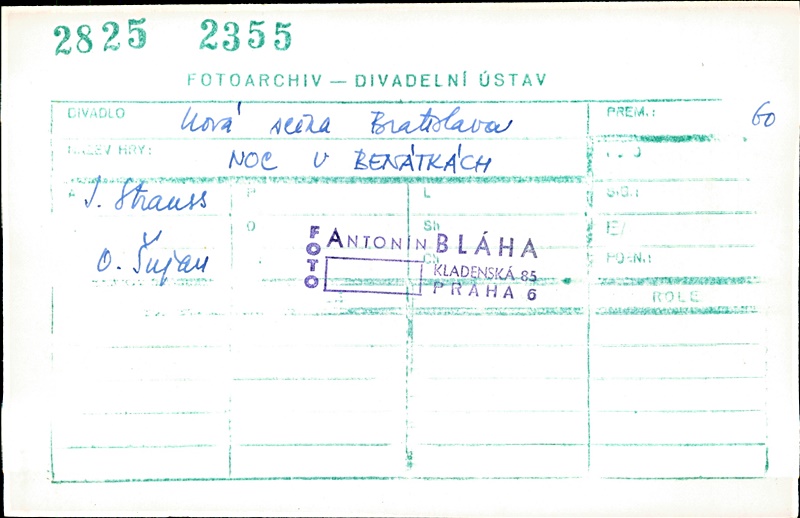 2825 2355
FOTOARCHIV — DIVADELNÍ ÚSTAV
DIVADLO Nová scéna Bratislava PREM.: 60
NÁZEV HRY: NOC V BENÁTKÁCH
A J. Strauss P L
O. Šujan O Sh E/
FOTO ANTONÍN BLÁHA
KLADENSKÁ 85 POZN.:
PRAHA 6 ROLE